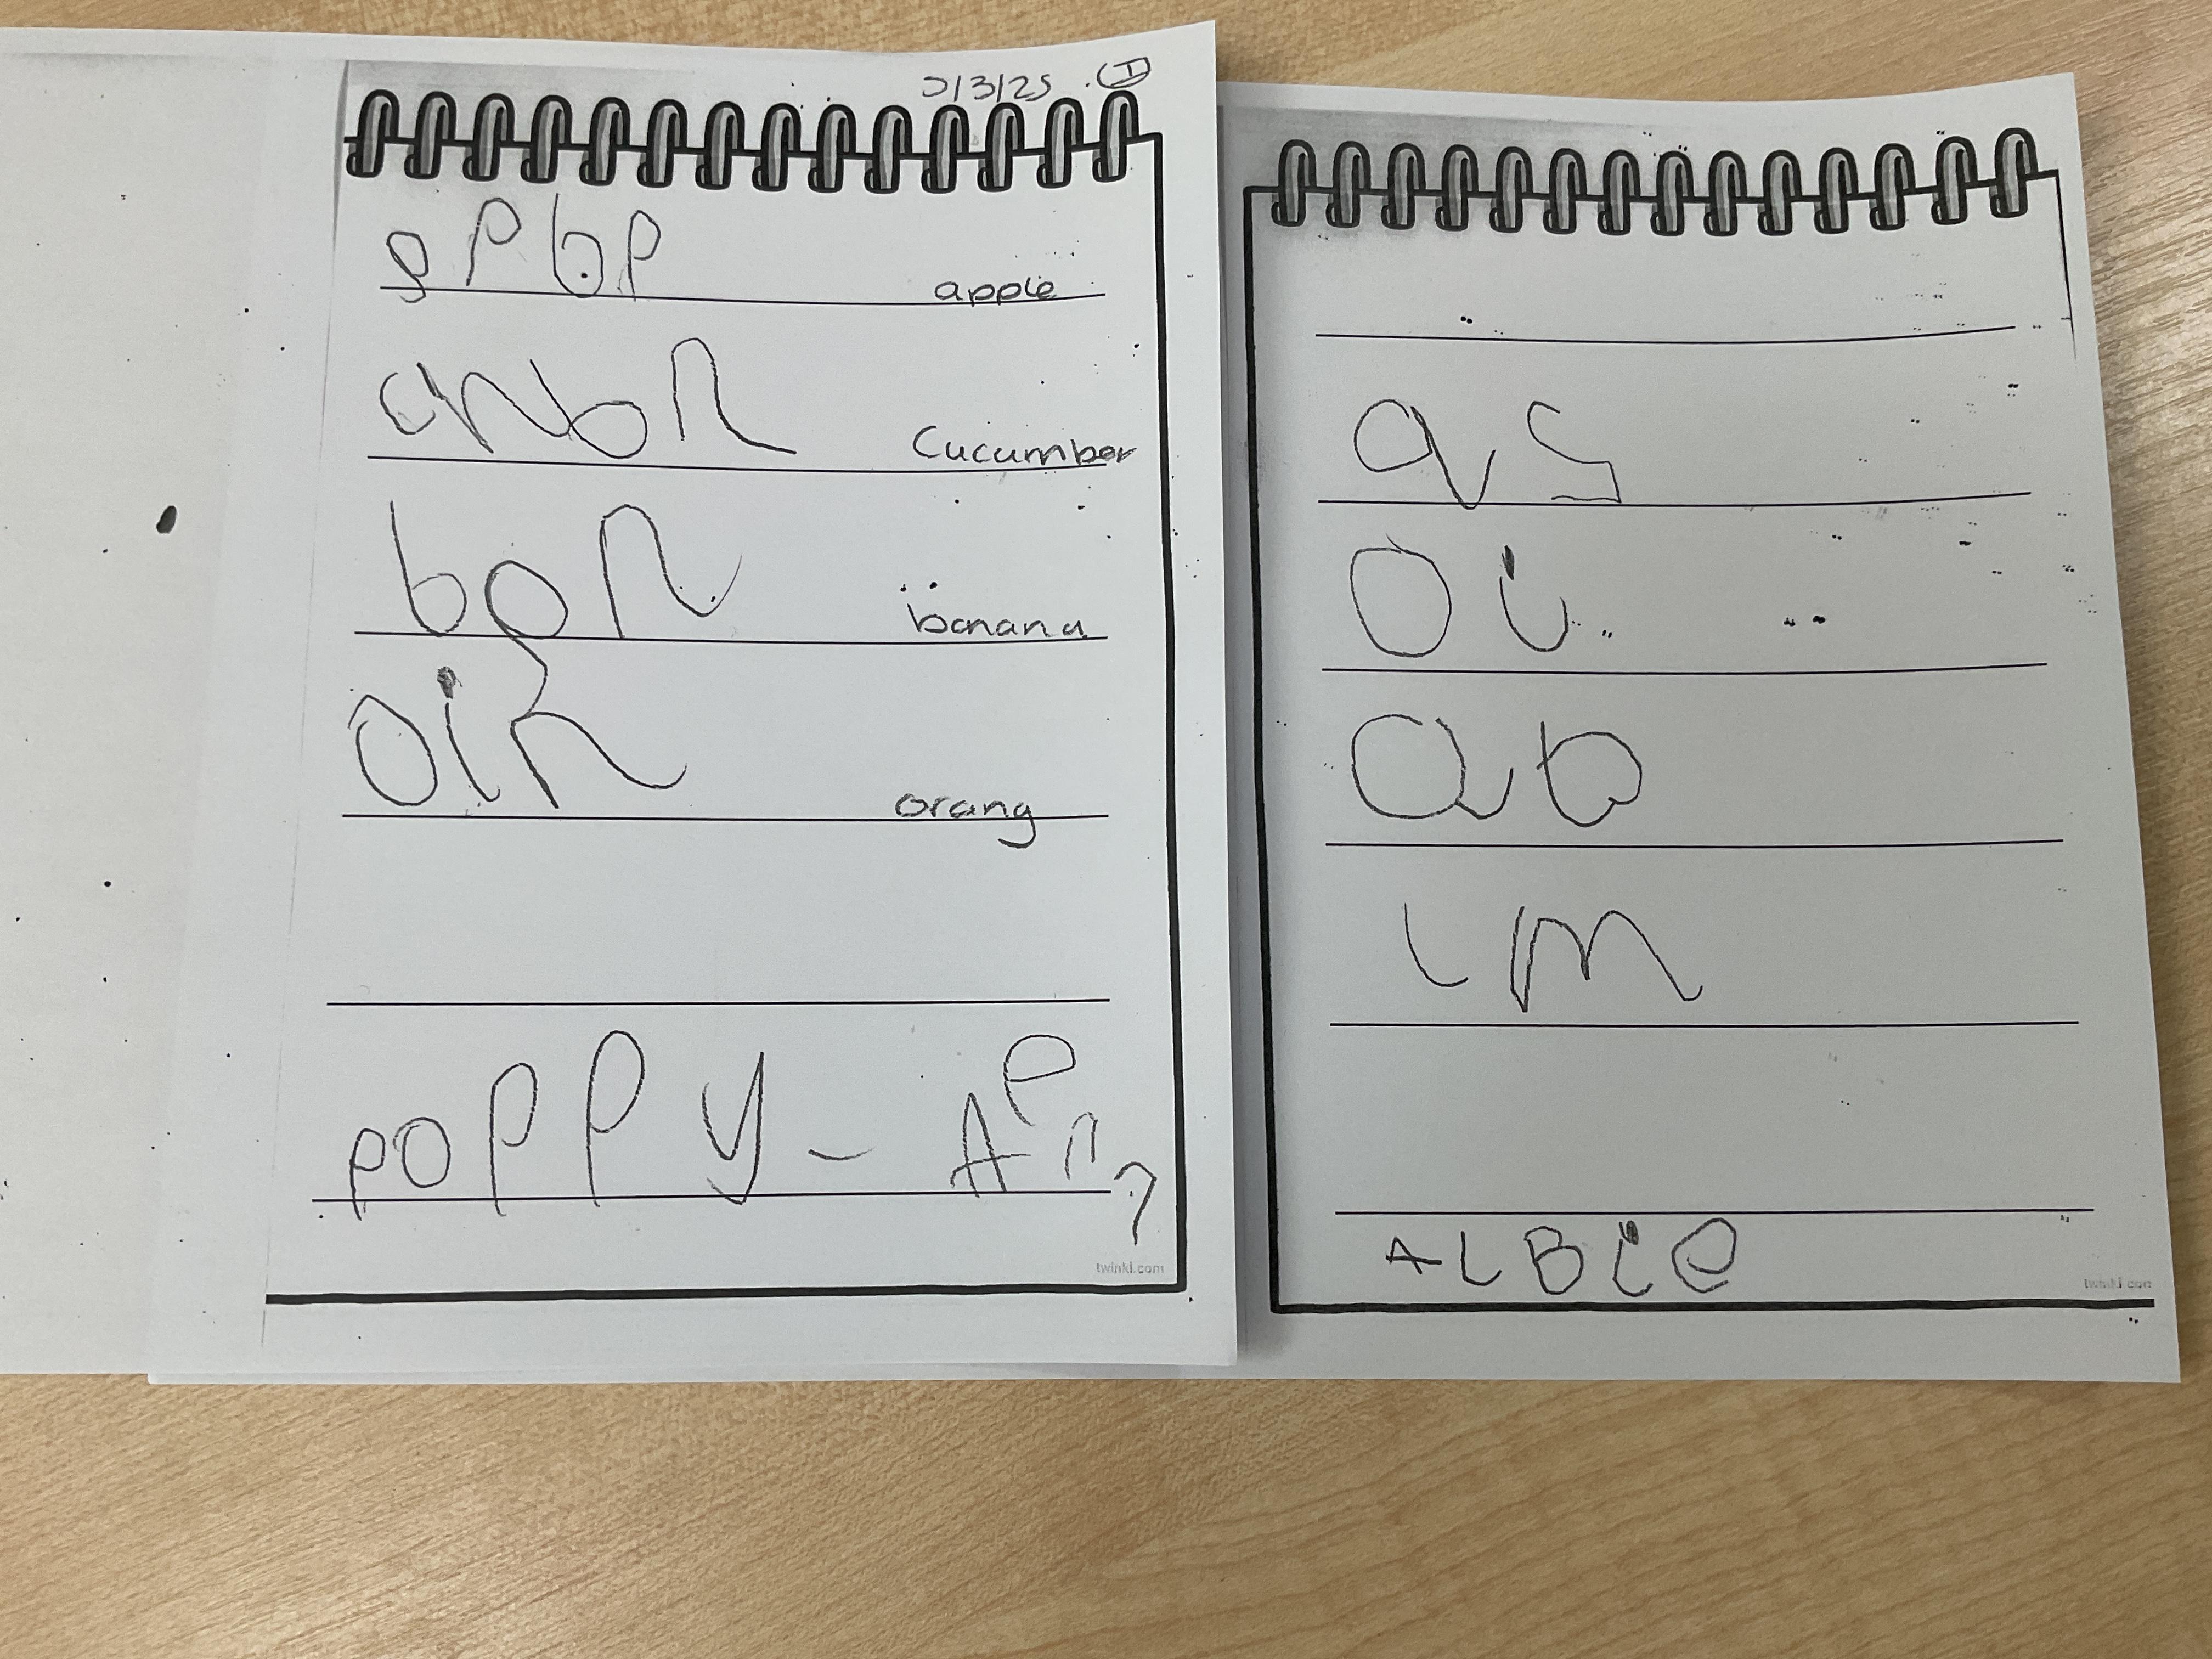 3/3/25 (I)
apple
cnbn
Cucumber
bon
banana
oin
orang
poppy - Ann
twinkl.com
as
oi
ab
lm
ALBie
twinkl.com